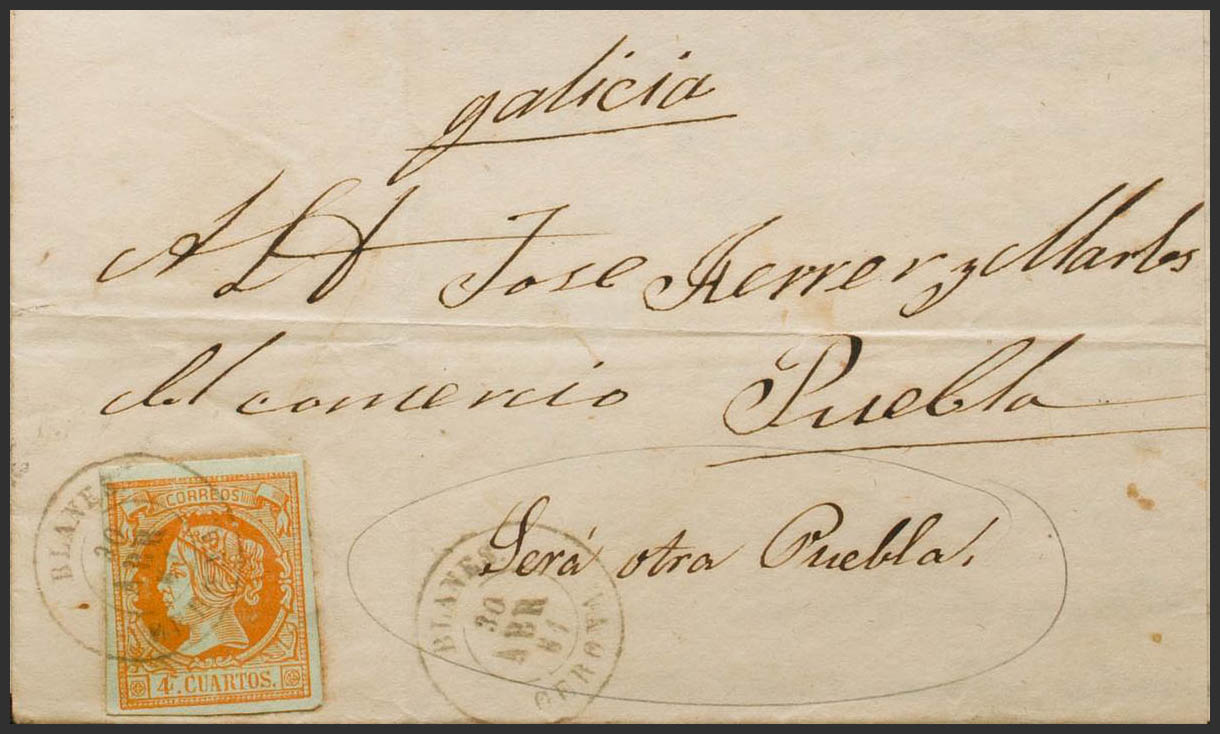 galicia
A D. Jose Ferrer y Martos
del comercio Puebla
Será otra Puebla.
CORREOS
4 Cs. CUARTOS.
BLANES
30
ABR
BLANES
30
ABR
61
GERO